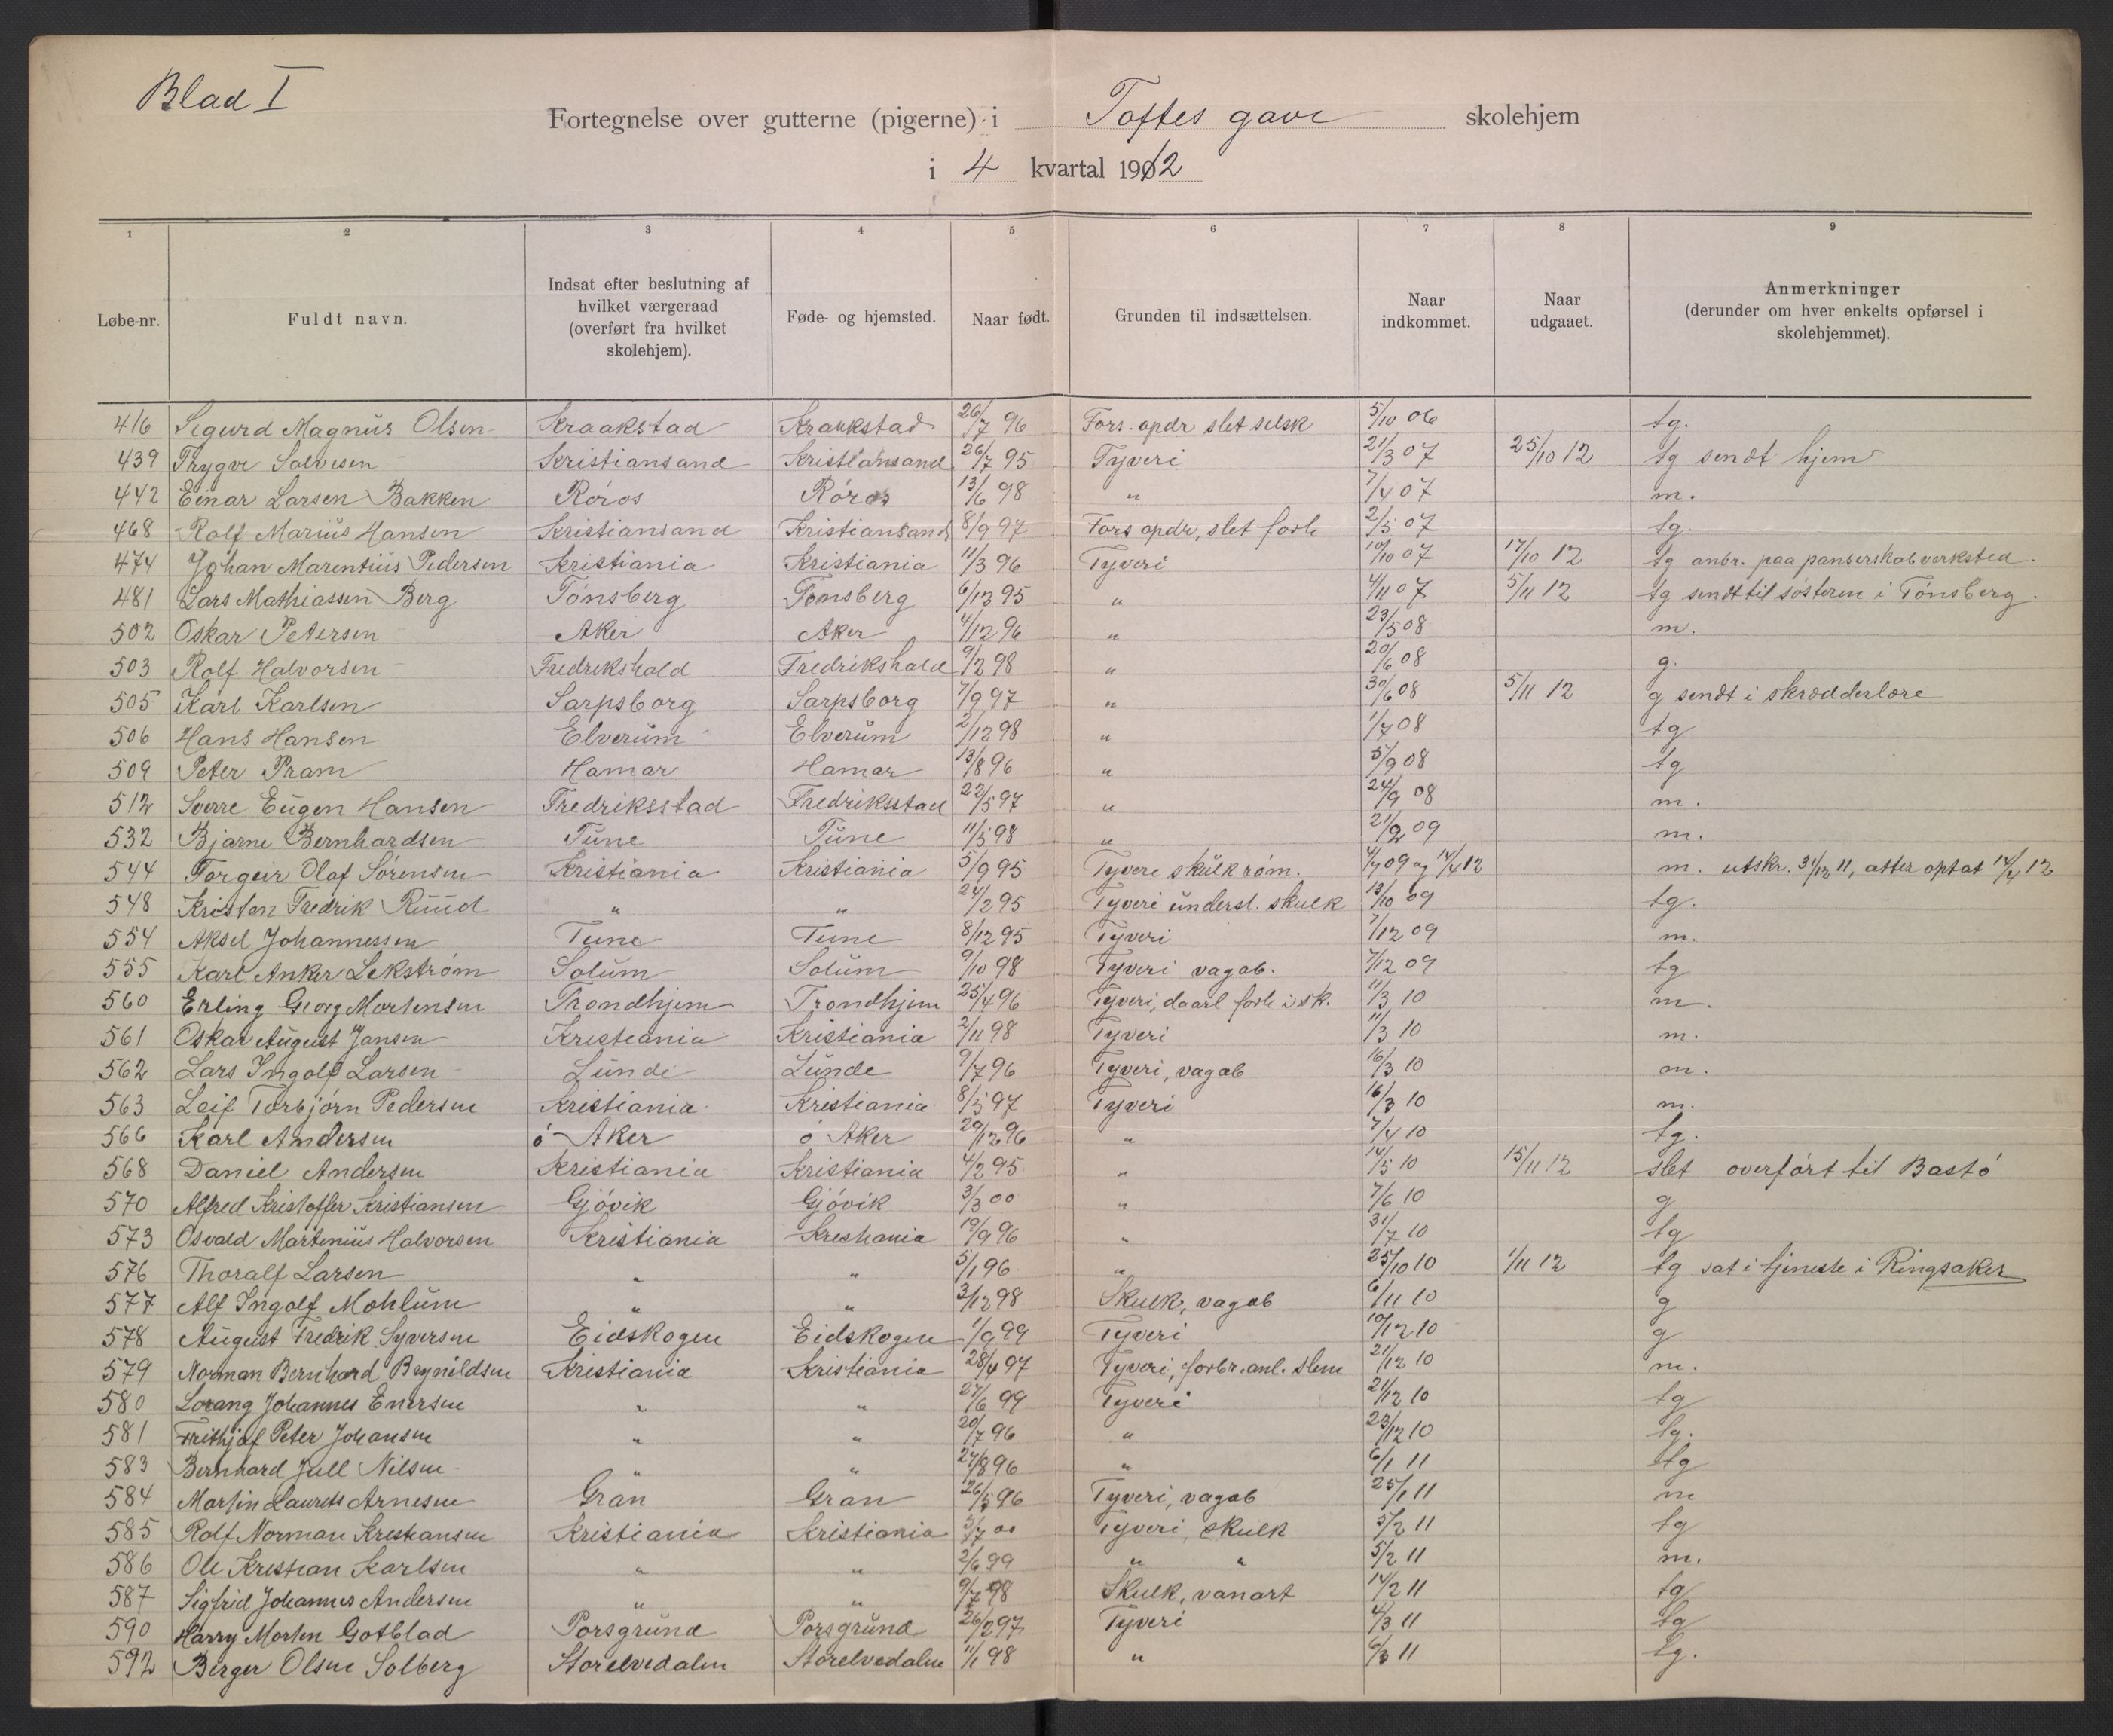 Blad I
Fortegnelse over gutterne (pigerne) i Toftes gave skolehjem
i 4 kvartal 1912
1 2 3 4 5 6 7 8 9
Løbe-nr. Fuldt navn. Indsat efter beslutning af hvilket værgeraad (overført fra hvilket skolehjem). Føde- og hjemsted. Naar født. Grunden til indsættelsen. Naar indkommet. Naar udgaaet. Anmerkninger (derunder om hver enkelts opførsel i skolehjemmet).
416 Sigurd Magnus Olsen Kraakstad Kraakstad 26/7 96 Fors. opdr slet selsk 5/10 06 tg.
439 Trygve Salvesen Kristiansand Kristiansand 26/7 95 Tyveri 21/3 07 25/10 12 tg sendt hjem
442 Einar Larsen Bakken Røros Røros 13/6 98 " 7/4 07 m.
468 Rolf Marius Hansen Kristiansand Kristiansand 8/9 97 Fors opdr, slet forh 2/5 07 tg.
474 Johan Marentius Pedersen Kristiania Kristiania 11/3 96 Tyveri 10/10 07 17/10 12 tg anbr. paa panserskabverksted.
481 Lars Mathiassen Berg Tønsberg Tønsberg 6/12 95 " 4/11 07 5/11 12 tg sendt til søsteren i Tønsberg.
502 Oskar Petersen Aker Aker 4/12 96 " 23/5 08 m.
503 Rolf Halvorsen Fredrikshald Fredrikshald 9/2 98 " 20/6 08 g.
505 Karl Karlsen Sarpsborg Sarpsborg 7/9 97 " 30/6 08 5/11 12 g sendt i skrædderlære
506 Hans Hansen Elverum Elverum 2/12 98 " 1/7 08 tg
509 Peter Pram Hamar Hamar 13/8 96 " 5/9 08 tg
512 Sverre Eugen Hansen Fredriksstad Fredriksstad 22/5 97 " 24/9 08 m.
532 Bjarne Bernhardsen Tune Tune 11/5 98 " 21/2 09 m.
544 Torgeir Olaf Sørensen Kristiania Kristiania 5/9 95 Tyveri skulk røm. 4/7 09 og 14/4 12 m. utskr. 31/12 11, atter optat 14/4 12
548 Kristen Fredrik Ruud " " 24/2 95 Tyveri undersl. skulk 13/10 09 tg.
554 Aksel Johannessen Tune Tune 8/12 95 Tyveri 7/12 09 m.
555 Karl Anker Lekstrøm Solum Solum 9/10 98 Tyveri vagab. 7/12 09 tg
560 Erling Georg Mortensen Trondhjem Trondhjem 25/4 96 Tyveri, daarl forh i sk. 11/3 10 m.
561 Oskar August Jansen Kristiania Kristiania 2/11 98 Tyveri 11/3 10 m.
562 Lars Ingolf Larsen Lunde Lunde 9/7 96 Tyveri, vagab 16/3 10 m.
563 Leif Torbjørn Pedersen Kristiania Kristiania 8/5 97 Tyveri 16/3 10 m.
566 Karl Andersen ø Aker ø Aker 29/12 96 " 7/4 10 tg.
568 Daniel Andersen Kristiania Kristiania 4/2 95 " 14/5 10 15/11 12 slet overført til Bastø
570 Alfred Kristoffer Kristiansen Gjøvik Gjøvik 3/3 00 " 7/6 10 g
573 Osvald Martinius Halvorsen Kristiania Kristiania 19/9 96 " 31/7 10 tg
576 Thoralf Larsen " " 5/1 96 " 25/10 10 1/11 12 tg sat i tjeneste i Ringsaker
577 Alf Ingolf Mohlum " " 2/12 98 Skulk, vagab 6/11 10 g
578 August Fredrik Syversen Eidskogen Eidskogen 1/9 99 Tyveri 10/12 10 g
579 Norman Bernhard Brynildsen Kristiania Kristiania 28/4 97 Tyveri, forbr. anl. slem 21/12 10 m.
580 Lorang Johannes Enersen " " 27/6 99 Tyveri 21/12 10 tg
581 Frithjof Peter Johansen " " 20/7 96 " 23/12 10 tg.
583 Bernhard Jull Nilsen " " 27/8 96 " 6/1 11 tg
584 Martin Laurits Arnesen Gran Gran 26/5 96 Tyveri, vagab 25/1 11 m
585 Rolf Norman Kristiansen Kristiania Kristiania 3/7 00 Tyveri, skulk 5/2 11 tg
586 Ole Kristian Karlsen " " 2/6 99 " " 5/2 11 m.
587 Sigfrid Johannes Andersen " " 9/7 98 Skulk, vanart 14/2 11 tg
590 Harry Morten Gotblad Porsgrund Porsgrund 26/2 97 Tyveri 4/3 11 tg
592 Birger Olsen Solberg Storelvedalen Storelvedalen 11/1 98 " 6/3 11 tg.